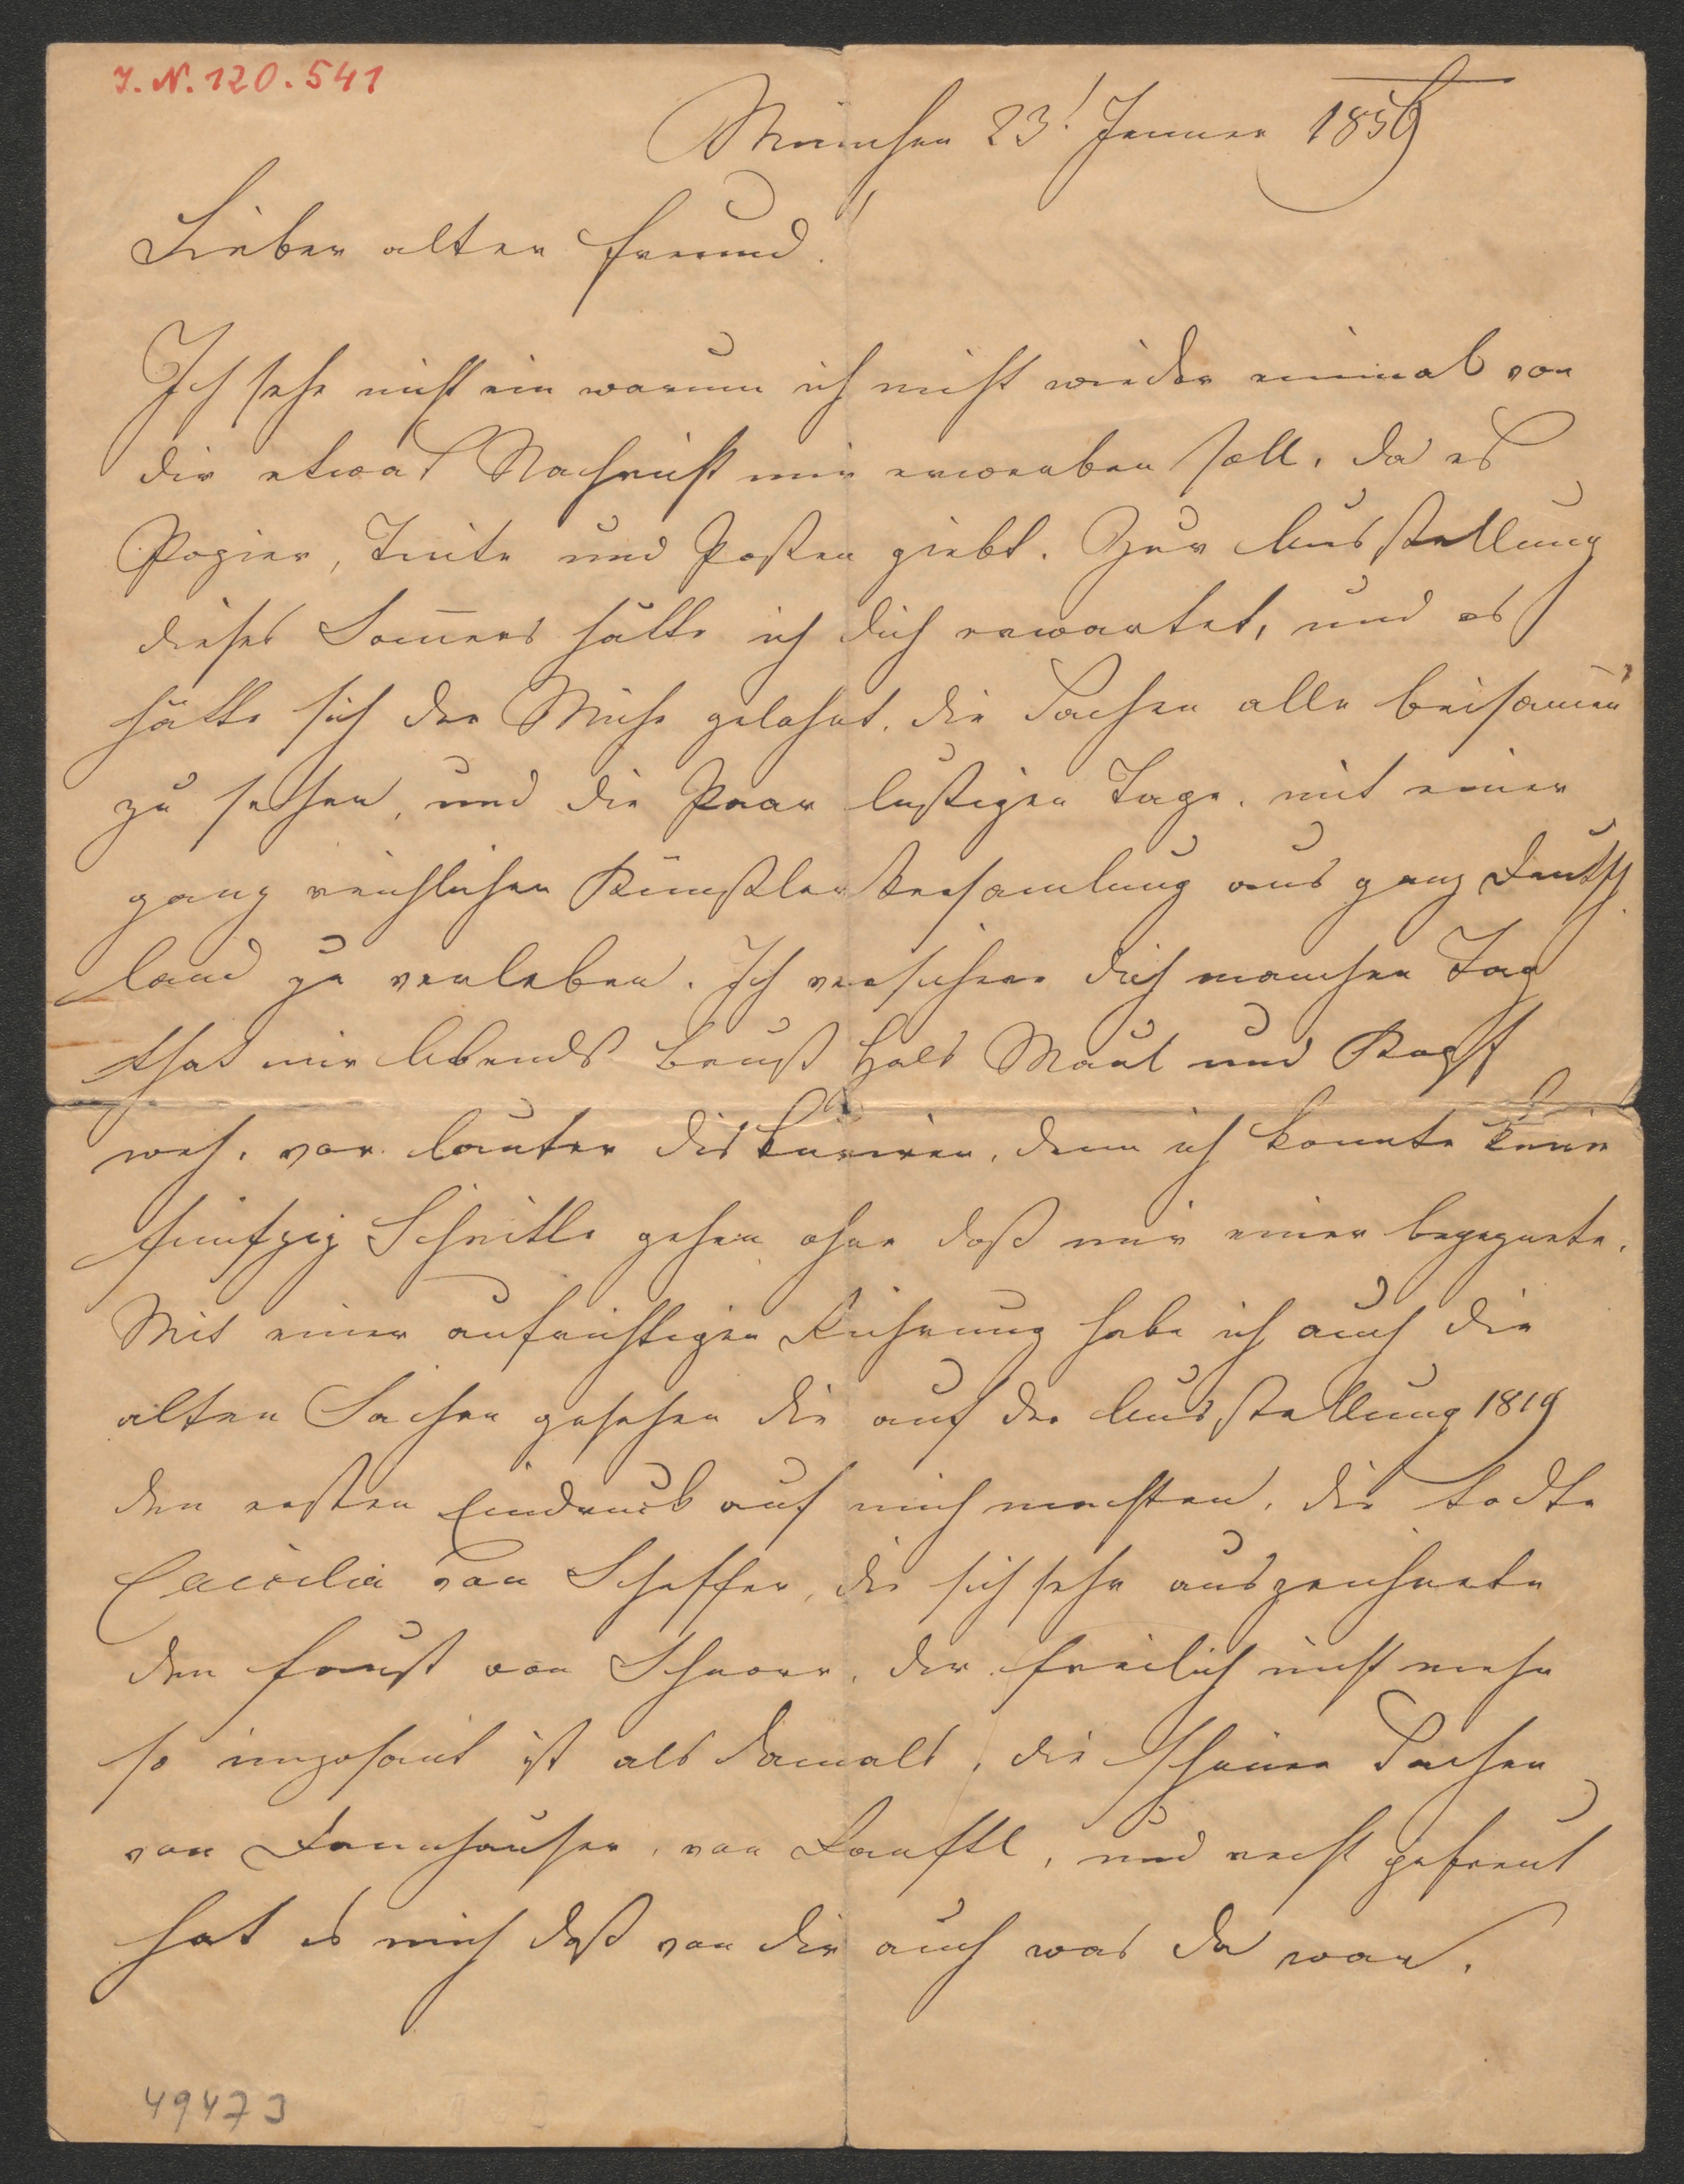 I. N. 120.541
München 23! Jenner 1859
Lieber alter Freund!
Ich sehe nicht ein warum ich nicht wieder einmal von
dir etwas Nachricht mir erwerben soll, da es
Papier, Tinte und Posten giebt. Zur Ausstellung
dieses Som̅ers hätte ich dich erwartet, und es
hätte sich der Mühe gelohnt, die Sachen alle beisam̅en
zu sehen, und die Paar lustigen Tage, mit einer
ganz reichlichen Künstler Versamlung aus ganz Deutsch
land zu verleben. Ich versichere dich manchen Tag
that mir Abends Brust Hals Maul und Kopf
weh, vor lauter diskuriren, denn ich konnte keine
fünfzig Schritte gehen ohne daß mir einer begegnete.
Mit einer aufrichtigen Rührung habe ich auch die
alten Sachen gesehen die auf der Ausstellung 1819
den ersten Eindruck auf mich machten, die todte
Caecilia von Scheffer, die sich sehr auszeichnete
den Faust von Schnorr, der freilich nicht mehr
so imposant ist als damals, die schönen Sachen
von Dannhauser, von Ranftl, und recht gefreut
hat es mich daß von dir auch was da war.
49473